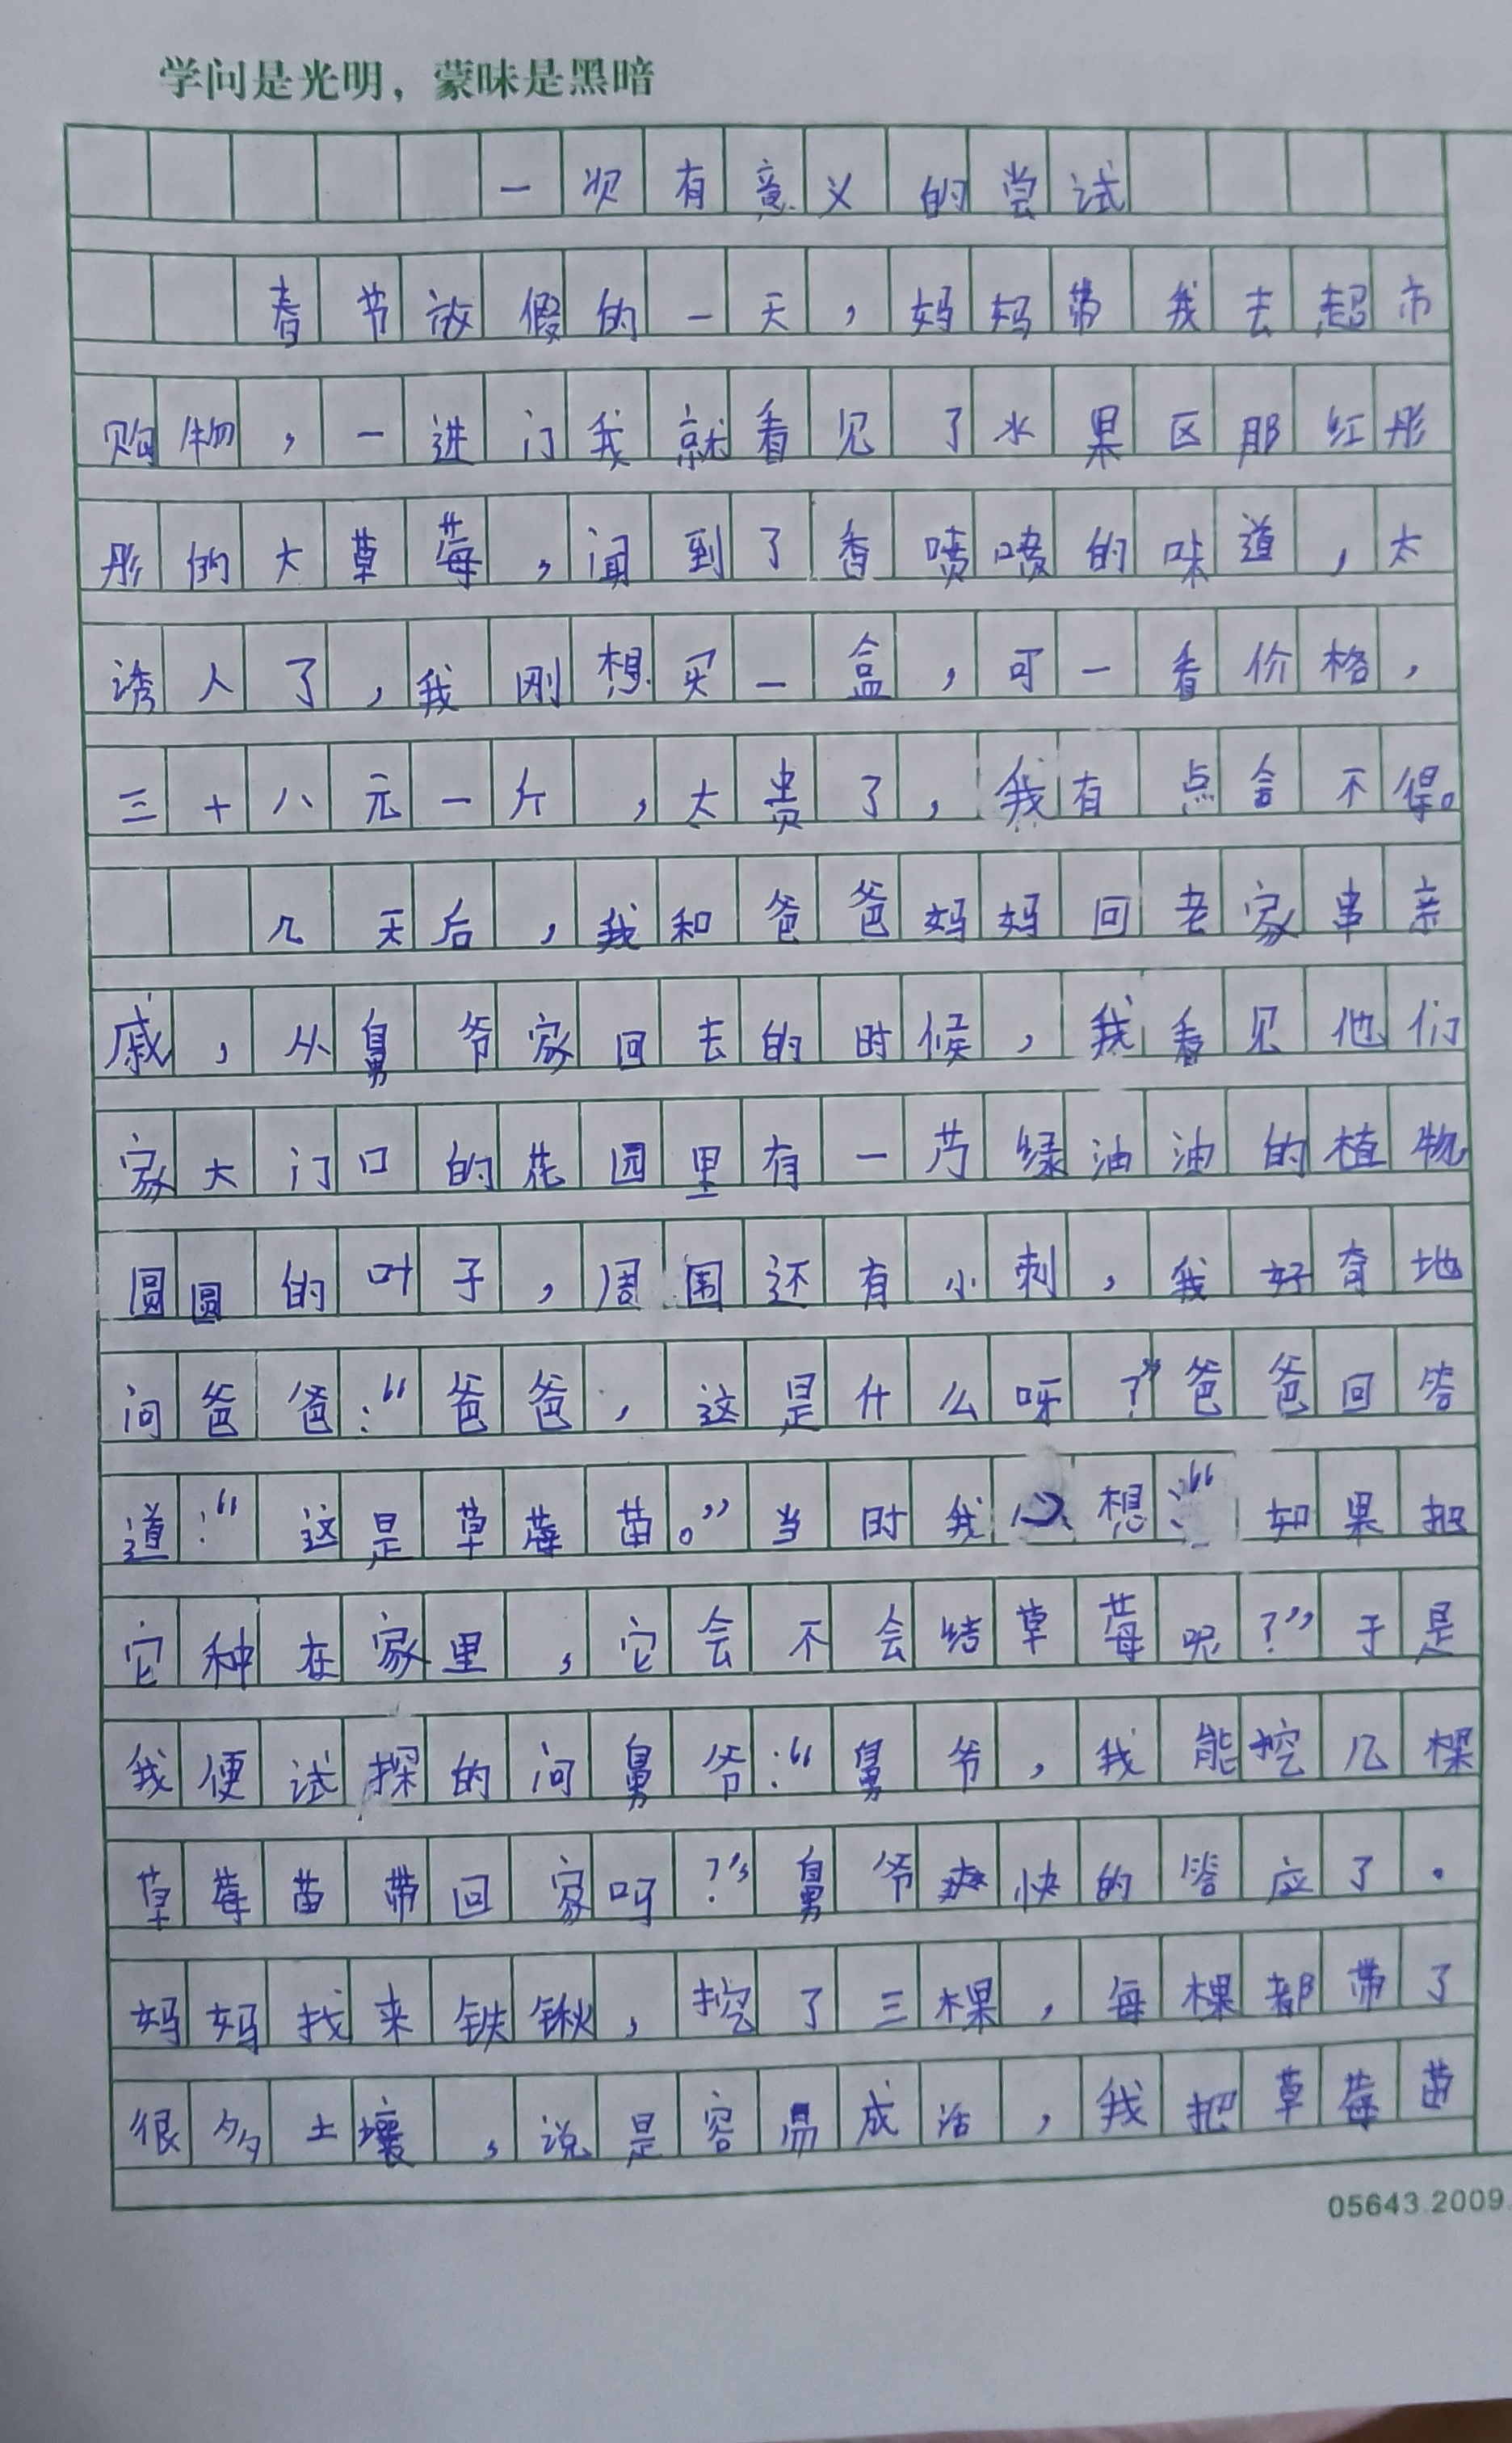 学问是光明，蒙昧是黑暗
一次有意义的尝试
春节放假的一天，妈妈带我去超市
购物，一进门我就看见了水果区那红彤
彤的大草莓，闻到了香喷喷的味道，太
诱人了，我刚想买一盒，可一看价格，
三十八元一斤，太贵了，我有点舍不得。
几天后，我和爸爸妈妈回老家串亲
戚，从舅爷家回去的时候，我看见他们
家大门口的花园里有一片绿油油的植物
圆圆的叶子，周围还有小刺，我好奇地
问爸爸：“爸爸，这是什么呀？”爸爸回答
道：“这是草莓苗。”当时我心想：“如果把
它种在家里，它会不会结草莓呢？”于是
我便试探的问舅爷：“舅爷，我能挖几棵
草莓苗带回家吗？”舅爷爽快的答应了。
妈妈找来铁锹，挖了三棵，每棵都带了
很多土壤，说是容易成活，我把草莓苗
05643.2009.